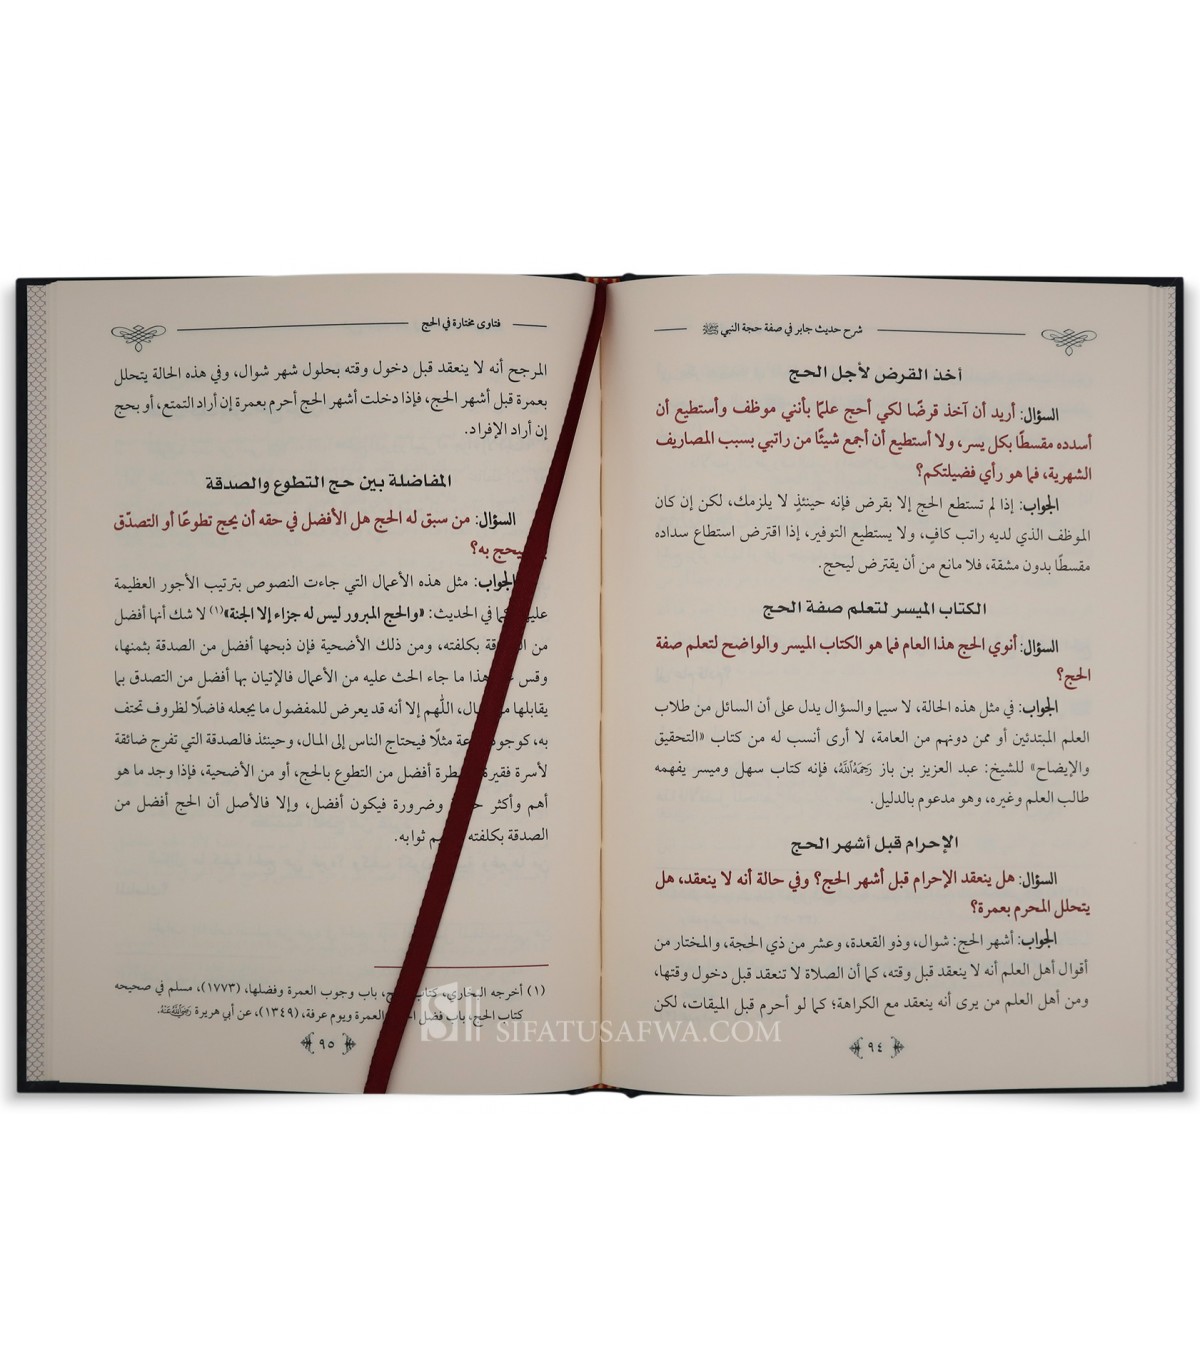 شرح حديث جابر في صفة حجة النبي ﷺ
أخذ القرض لأجل الحج
السؤال: أريد أن آخذ قرضًا لكي أحج علمًا بأنني موظف وأستطيع أن
أسدده مقسطًا بكل يسر، ولا أستطيع أن أجمع شيئًا من راتبي بسبب المصاريف
الشهرية، فما هو رأي فضيلتكم؟
الجواب: إذا لم تستطع الحج إلا بقرض فإنه حينئذٍ لا يلزمك، لكن إن كان
الموظف الذي لديه راتب كافٍ، ولا يستطيع التوفير، إذا اقترض استطاع سداده
مقسطًا بدون مشقة، فلا مانع من أن يقترض ليحج.
الكتاب الميسر لتعلم صفة الحج
السؤال: أنوي الحج هذا العام فما هو الكتاب الميسر والواضح لتعلم صفة
الحج؟
الجواب: في مثل هذه الحالة، لا سيما والسؤال يدل على أن السائل من طلاب
العلم المبتدئين أو ممن دونهم من العامة، لا أرى أنسب له من كتاب «التحقيق
والإيضاح» للشيخ: عبد العزيز بن باز رَحِمَهُ اللَّهُ، فإنه كتاب سهل وميسر يفهمه
طالب العلم وغيره، وهو مدعوم بالدليل.
الإحرام قبل أشهر الحج
السؤال: هل ينعقد الإحرام قبل أشهر الحج؟ وفي حالة أنه لا ينعقد، هل
يتحلل المحرم بعمرة؟
الجواب: أشهر الحج: شوال، وذو القعدة، وعشر من ذي الحجة، والمختار من
أقوال أهل العلم أنه لا ينعقد قبل وقته، كما أن الصلاة لا تنعقد قبل دخول وقتها،
ومن أهل العلم من يرى أنه ينعقد مع الكراهة؛ كما لو أحرم قبل الميقات، لكن
٩٤
فتاوى مختارة في الحج
المرجح أنه لا ينعقد قبل دخول وقته بحلول شهر شوال، وفي هذه الحالة يتحلل
بعمرة قبل أشهر الحج، فإذا دخلت أشهر الحج أحرم بعمرة إن أراد التمتع، أو بحج
إن أراد الإفراد.
المفاضلة بين حج التطوع والصدقة
السؤال: من سبق له الحج هل الأفضل في حقه أن يحج تطوعًا أو التصدّق
يحج به؟
الجواب: مثل هذه الأعمال التي جاءت النصوص بترتيب الأجور العظيمة
كما في الحديث: «والحج المبرور ليس له جزاء إلا الجنة»(١) لا شك أنها أفضل
من بكلفته، ومن ذلك الأضحية فإن ذبحها أفضل من الصدقة بثمنها،
وقس هذا ما جاء الحث عليه من الأعمال فالإتيان بها أفضل من التصدق بما
يقابلها اللَّهم إلا أنه قد يعرض للمفضول ما يجعله فاضلًا لظروف تحتف
به، مثلًا فيحتاج الناس إلى المال، وحينئذ فالصدقة التي تفرج ضائقة
لأسرة فقيرة أفضل من التطوع بالحج، أو من الأضحية، فإذا وجد ما هو
أهم وأكثر وضرورة فيكون أفضل، وإلا فالأصل أن الحج أفضل من
الصدقة بكلفته ثوابه.
(١) أخرجه البخاري، باب وجوب العمرة وفضلها، (١٧٧٣)، مسلم في صحيحه
كتاب الحج، باب فضل العمرة ويوم عرفة، (١٣٤٩)، عن أبي هريرة رَضِيَ اللَّهُ عَنْهُ.
٩٥
SIFATUSAFWA.COM